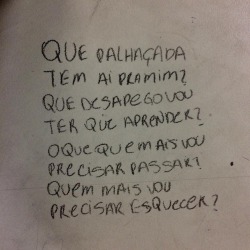 QUE PALHAÇADA
TEM AI PRAMIM?
QUE DESAPEGO VOU
TER QUE APRENDER?
O QUE QUE MAIS VOU
PRECISAR PASSAR?
QUEM MAIS VOU
PRECISAR ESQUECER?